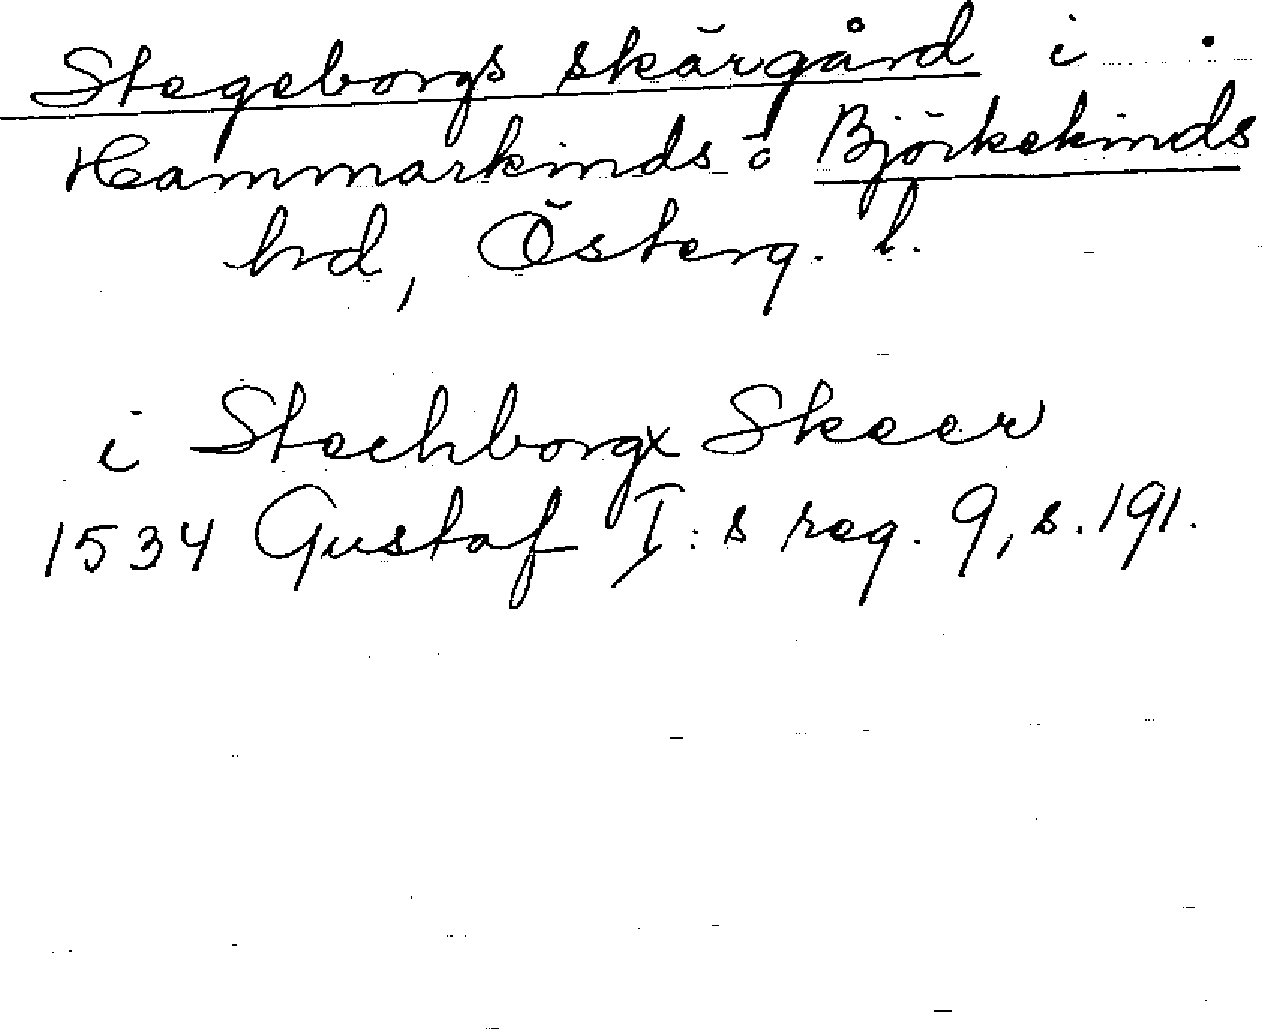 Stegeborgs skärgård i
Hammarkinds o Björkekinds
hd, Österg. l.
i Stechborgx Skeer
1534 Gustaf I:s reg. 9, s. 191.